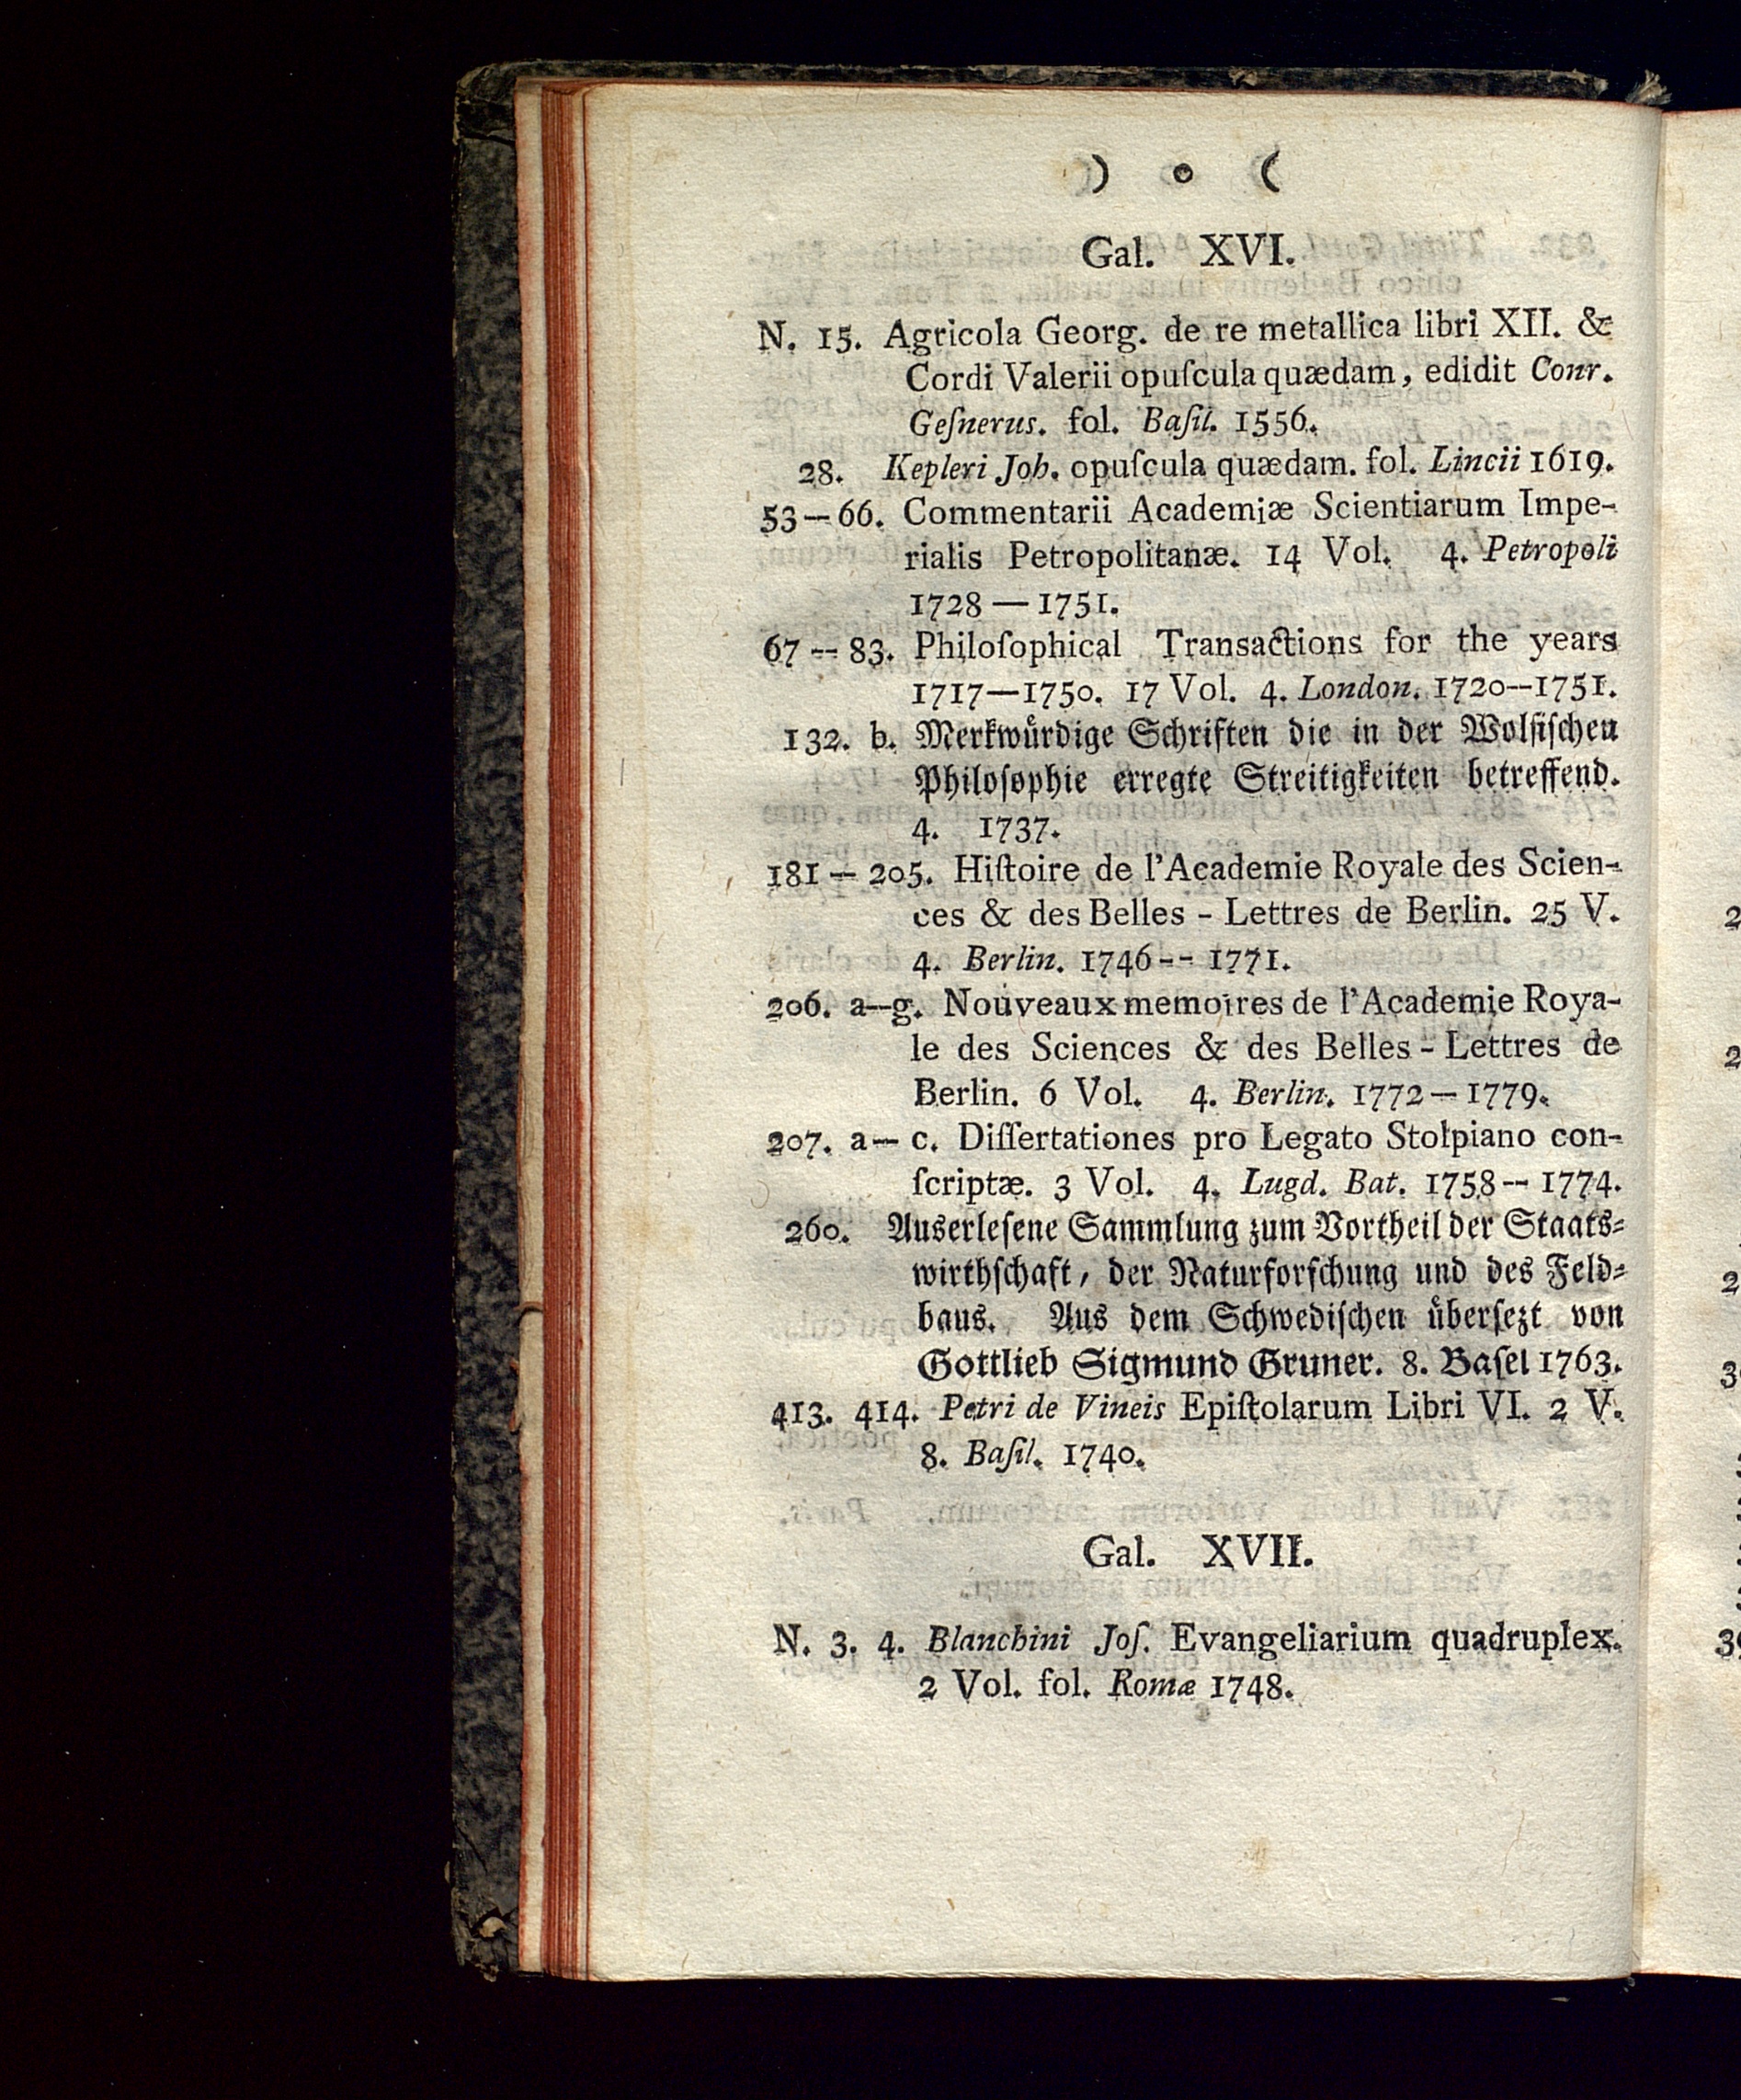 ) o (
Gal. XVI.
N. 15. Agricola Georg. de re metallica libri XII. &
Cordi Valerii opuſcula quædam, edidit Conr.
Geſnerus. fol. Baſil. 1556.
28. Kepleri Joh. opuſcula quædam. fol. Lincii 1619.
53—66. Commentarii Academiæ Scientiarum Impe-
rialis Petropolitanæ. 14 Vol. 4. Petropoli
1728 — 1751.
67 -- 83. Philoſophical Transactions for the years
1717—1750. 17 Vol. 4. London. 1720--1751.
132. b. Merkwuͤrdige Schriften die in der Wolfiſchen
Philoſophie erregte Streitigkeiten betreffend.
4. 1737.
181 — 205. Hiſtoire de l'Academie Royale des Scien-
ces & des Belles - Lettres de Berlin. 25 V.
4. Berlin. 1746-- 1771.
206. a--g. Nouveaux memoires de l'Academie Roya-
le des Sciences & des Belles - Lettres de
Berlin. 6 Vol. 4. Berlin. 1772 — 1779.
207. a— c. Diſſertationes pro Legato Stolpiano con-
ſcriptæ. 3 Vol. 4. Lugd. Bat. 1758 -- 1774.
260. Auserleſene Sammlung zum Vortheil der Staats⸗
wirthſchaft, der Naturforſchung und des Feld⸗
baus. Aus dem Schwediſchen uͤberſezt von
Gottlieb Sigmund Gruner. 8. Baſel 1763.
413. 414. Petri de Vineis Epiſtolarum Libri VI. 2 V.
8. Baſil. 1740.
Gal. XVII.
N. 3. 4. Blanchini Joſ. Evangeliarium quadruplex.
2 Vol. fol. Romæ 1748.